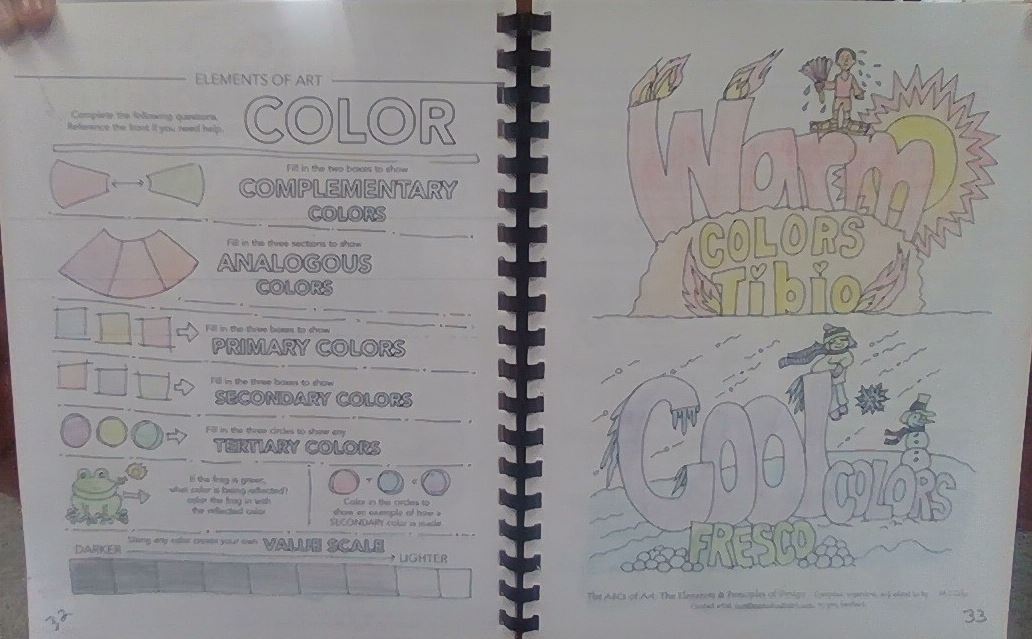 ELEMENTS OF ART
COLOR
Complete the following questions.
Reference the front if you need help.
Fill in the two boxes to show
COMPLEMENTARY
COLORS
Fill in the three sections to show
ANALOGOUS
COLORS
Fill in the three boxes to show
PRIMARY COLORS
Fill in the three boxes to show
SECONDARY COLORS
Fill in the three circles to show any
TERTIARY COLORS
If the frog is green,
what color is being reflected?
color the frog in with
the reflected color
Color in the circles to
show an example of how a
SECONDARY color is made
Using any color create your own VALUE SCALE
DARKER
LIGHTER
32
Warm
COLORS
Tibio
Cool
COLORS
FRESCO
The ABCs of Art: The Elements & Principles of Design
33